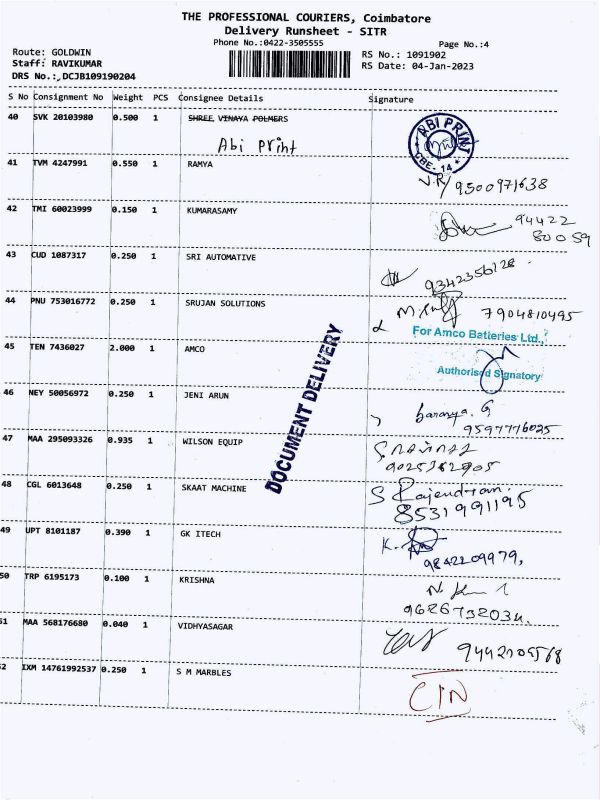 THE PROFESSIONAL COURIERS, Coimbatore
Delivery Runsheet - SITR
Phone No.:0422-3505555 Page No.:4
Route: GOLDWIN RS No.: 1091902
Staff: RAVIKUMAR RS Date: 04-Jan-2023
DRS No.:,DCJB109190204
S No Consignment No Weight PCS Consignee Details Signature
40 SVK 20103980 0.500 1 SHREE VINAYA POLMERS
Abi Print
ABI PRINT
CBE-14
41 TVM 4247991 0.550 1 RAMYA
9500971638
42 TMI 60023999 0.150 1 KUMARASAMY
94422
80059
43 CUD 1087317 0.250 1 SRI AUTOMATIVE
9342356128
44 PNU 753016772 0.250 1 SRUJAN SOLUTIONS
7904810495
For Amco Batteries Ltd.,
45 TEN 7436027 2.000 1 AMCO
Authorised Signatory
DOCUMENT DELIVERY
46 NEY 50056972 0.250 1 JENI ARUN
Saranya. G
9597776025
47 MAA 295093326 0.935 1 WILSON EQUIP
9025362905
48 CGL 6013648 0.250 1 SKAAT MACHINE
S Rajendran.
8531991195
49 UPT 8101187 0.390 1 GK ITECH
K.
9842209979,
50 TRP 6195173 0.100 1 KRISHNA
9626732034.
51 MAA 568176680 0.040 1 VIDHYASAGAR
9442109568
52 IXM 14761992537 0.250 1 S M MARBLES
CIN